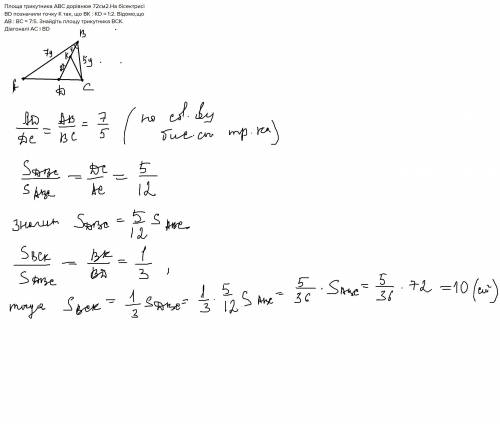 Площа трикутника ABC дорівнює 72см2.На бісектрисі
BD позначили точку K так, що BK : KD = 1:2. Відомо,що
AB : BC = 7:5. Знайдіть площу трикутника BCK.
Діагоналі AC i BD
B
7y
K
5y
A
D
C
AD/DC = AB/BC = 7/5 (по св. ву
бис.сы тр.ка)
S DBC / S ABC = DC/AC = 5/12
значит S DBC = 5/12 S ABC.
S BCK / S DBC = BK/BD = 1/3 ,
тогда S BCK = 1/3 S DBC = 1/3 · 5/12 S ABC = 5/36 · S ABC = 5/36 · 72 = 10 (см²)